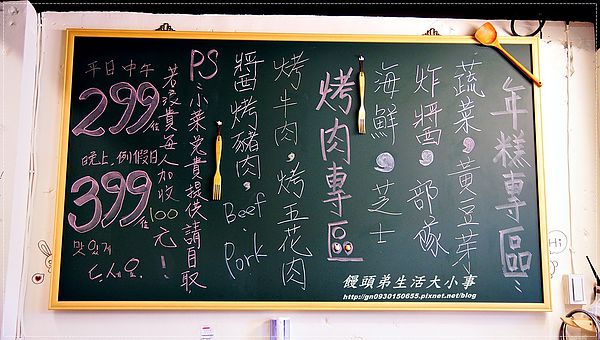 年糕專區:
蔬菜,黃豆芽
炸醬,部隊
海鮮,芝士
烤肉專區
烤牛肉,烤五花肉
醬烤豬肉,
Beef.
Pork
PS:小菜免費提供請自取
若浪費每人加收100元!
平日中午
299/位
晚上.例假日
399/位
맛있게
드세요.
饅頭弟生活大小事
http://gn0930150655.pixnet.net/blog
Hi